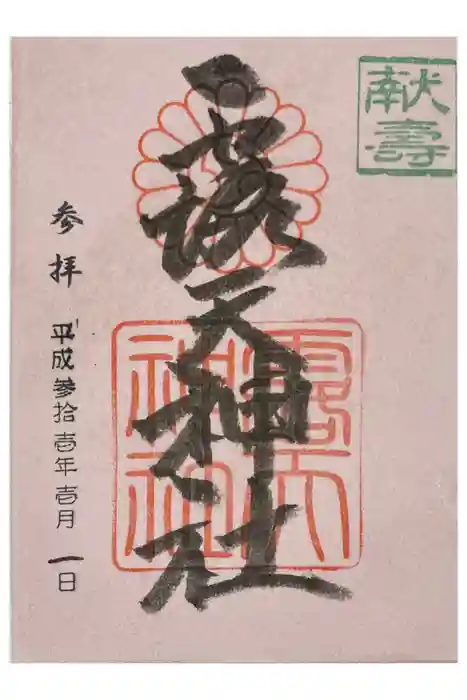 献壽
露天神社
露天
神社
参拝
平成参拾壱年壱月一日